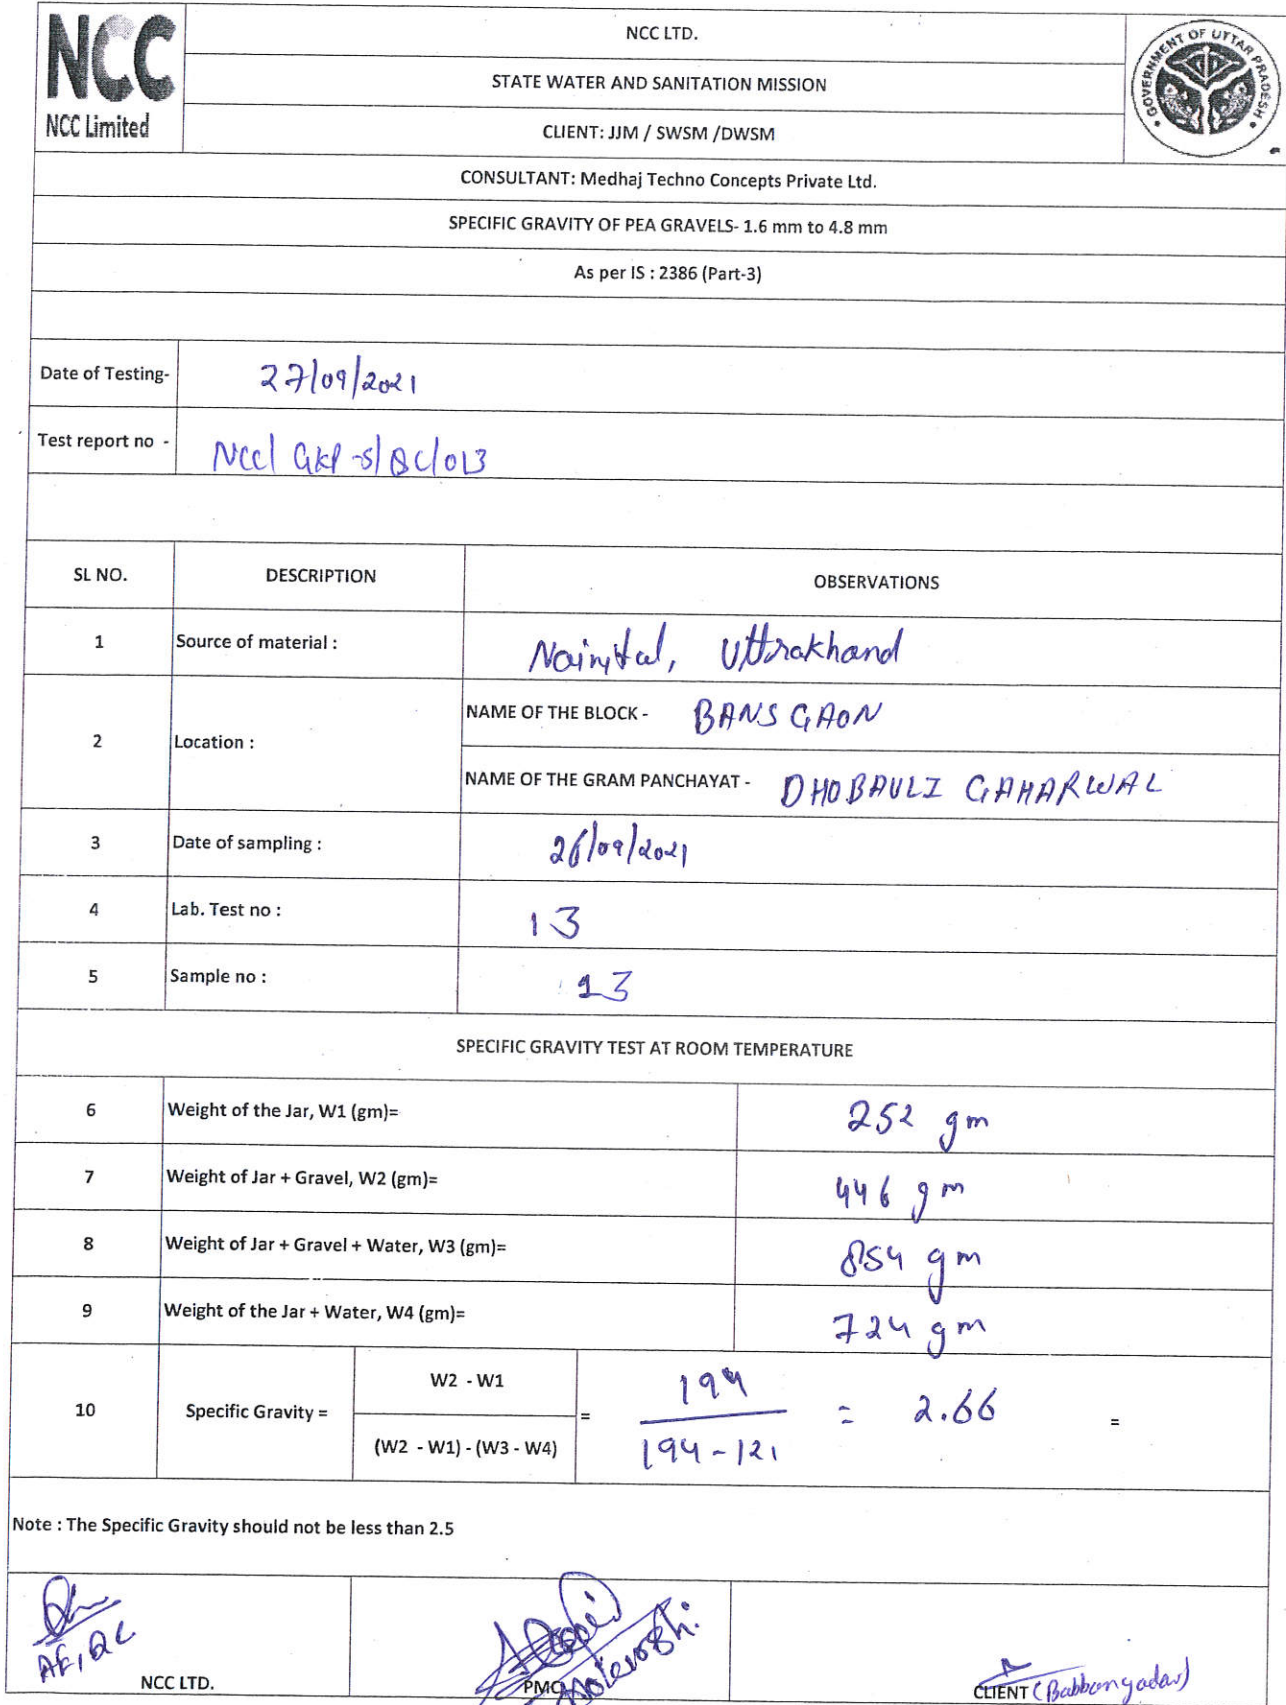 NCC
NCC Limited
NCC LTD.
STATE WATER AND SANITATION MISSION
CLIENT: JJM / SWSM /DWSM
GOVERNMENT OF UTTAR PRADESH
CONSULTANT: Medhaj Techno Concepts Private Ltd.
SPECIFIC GRAVITY OF PEA GRAVELS- 1.6 mm to 4.8 mm
As per IS : 2386 (Part-3)
Date of Testing- 27/09/2021
Test report no - NCC/ GKP-S/ QC/013
SL NO. DESCRIPTION OBSERVATIONS
1 Source of material : Nainital, Uttrakhand
2 Location : NAME OF THE BLOCK - BANSGAON
NAME OF THE GRAM PANCHAYAT - DHOBAULI GAHARWAL
3 Date of sampling : 26/09/2021
4 Lab. Test no : 13
5 Sample no : 13
SPECIFIC GRAVITY TEST AT ROOM TEMPERATURE
6 Weight of the Jar, W1 (gm)= 252 gm
7 Weight of Jar + Gravel, W2 (gm)= 446 gm
8 Weight of Jar + Gravel + Water, W3 (gm)= 854 gm
9 Weight of the Jar + Water, W4 (gm)= 724 gm
W2 - W1 194
10 Specific Gravity = = = 2.66 =
(W2 - W1) - (W3 - W4) 194-121
Note : The Specific Gravity should not be less than 2.5
AE, QC
NCC LTD. PMC CLIENT (Babban yadav)